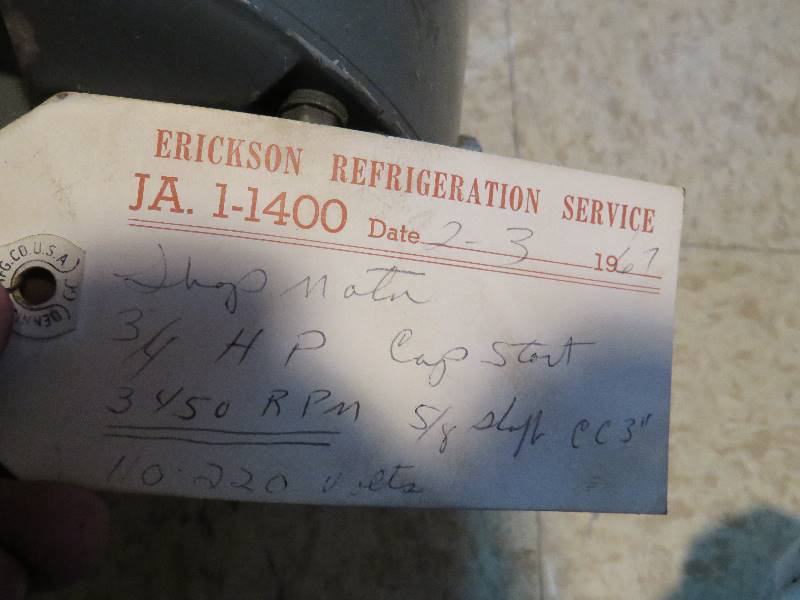 ERICKSON REFRIGERATION SERVICE
JA. 1-1400 Date 2-3 1967
Shop Motor
3/4 HP Cap Start
3450 RPM 5/8 Shaft CC 3"
110-220 Volts
FG. CO. U.S.A.